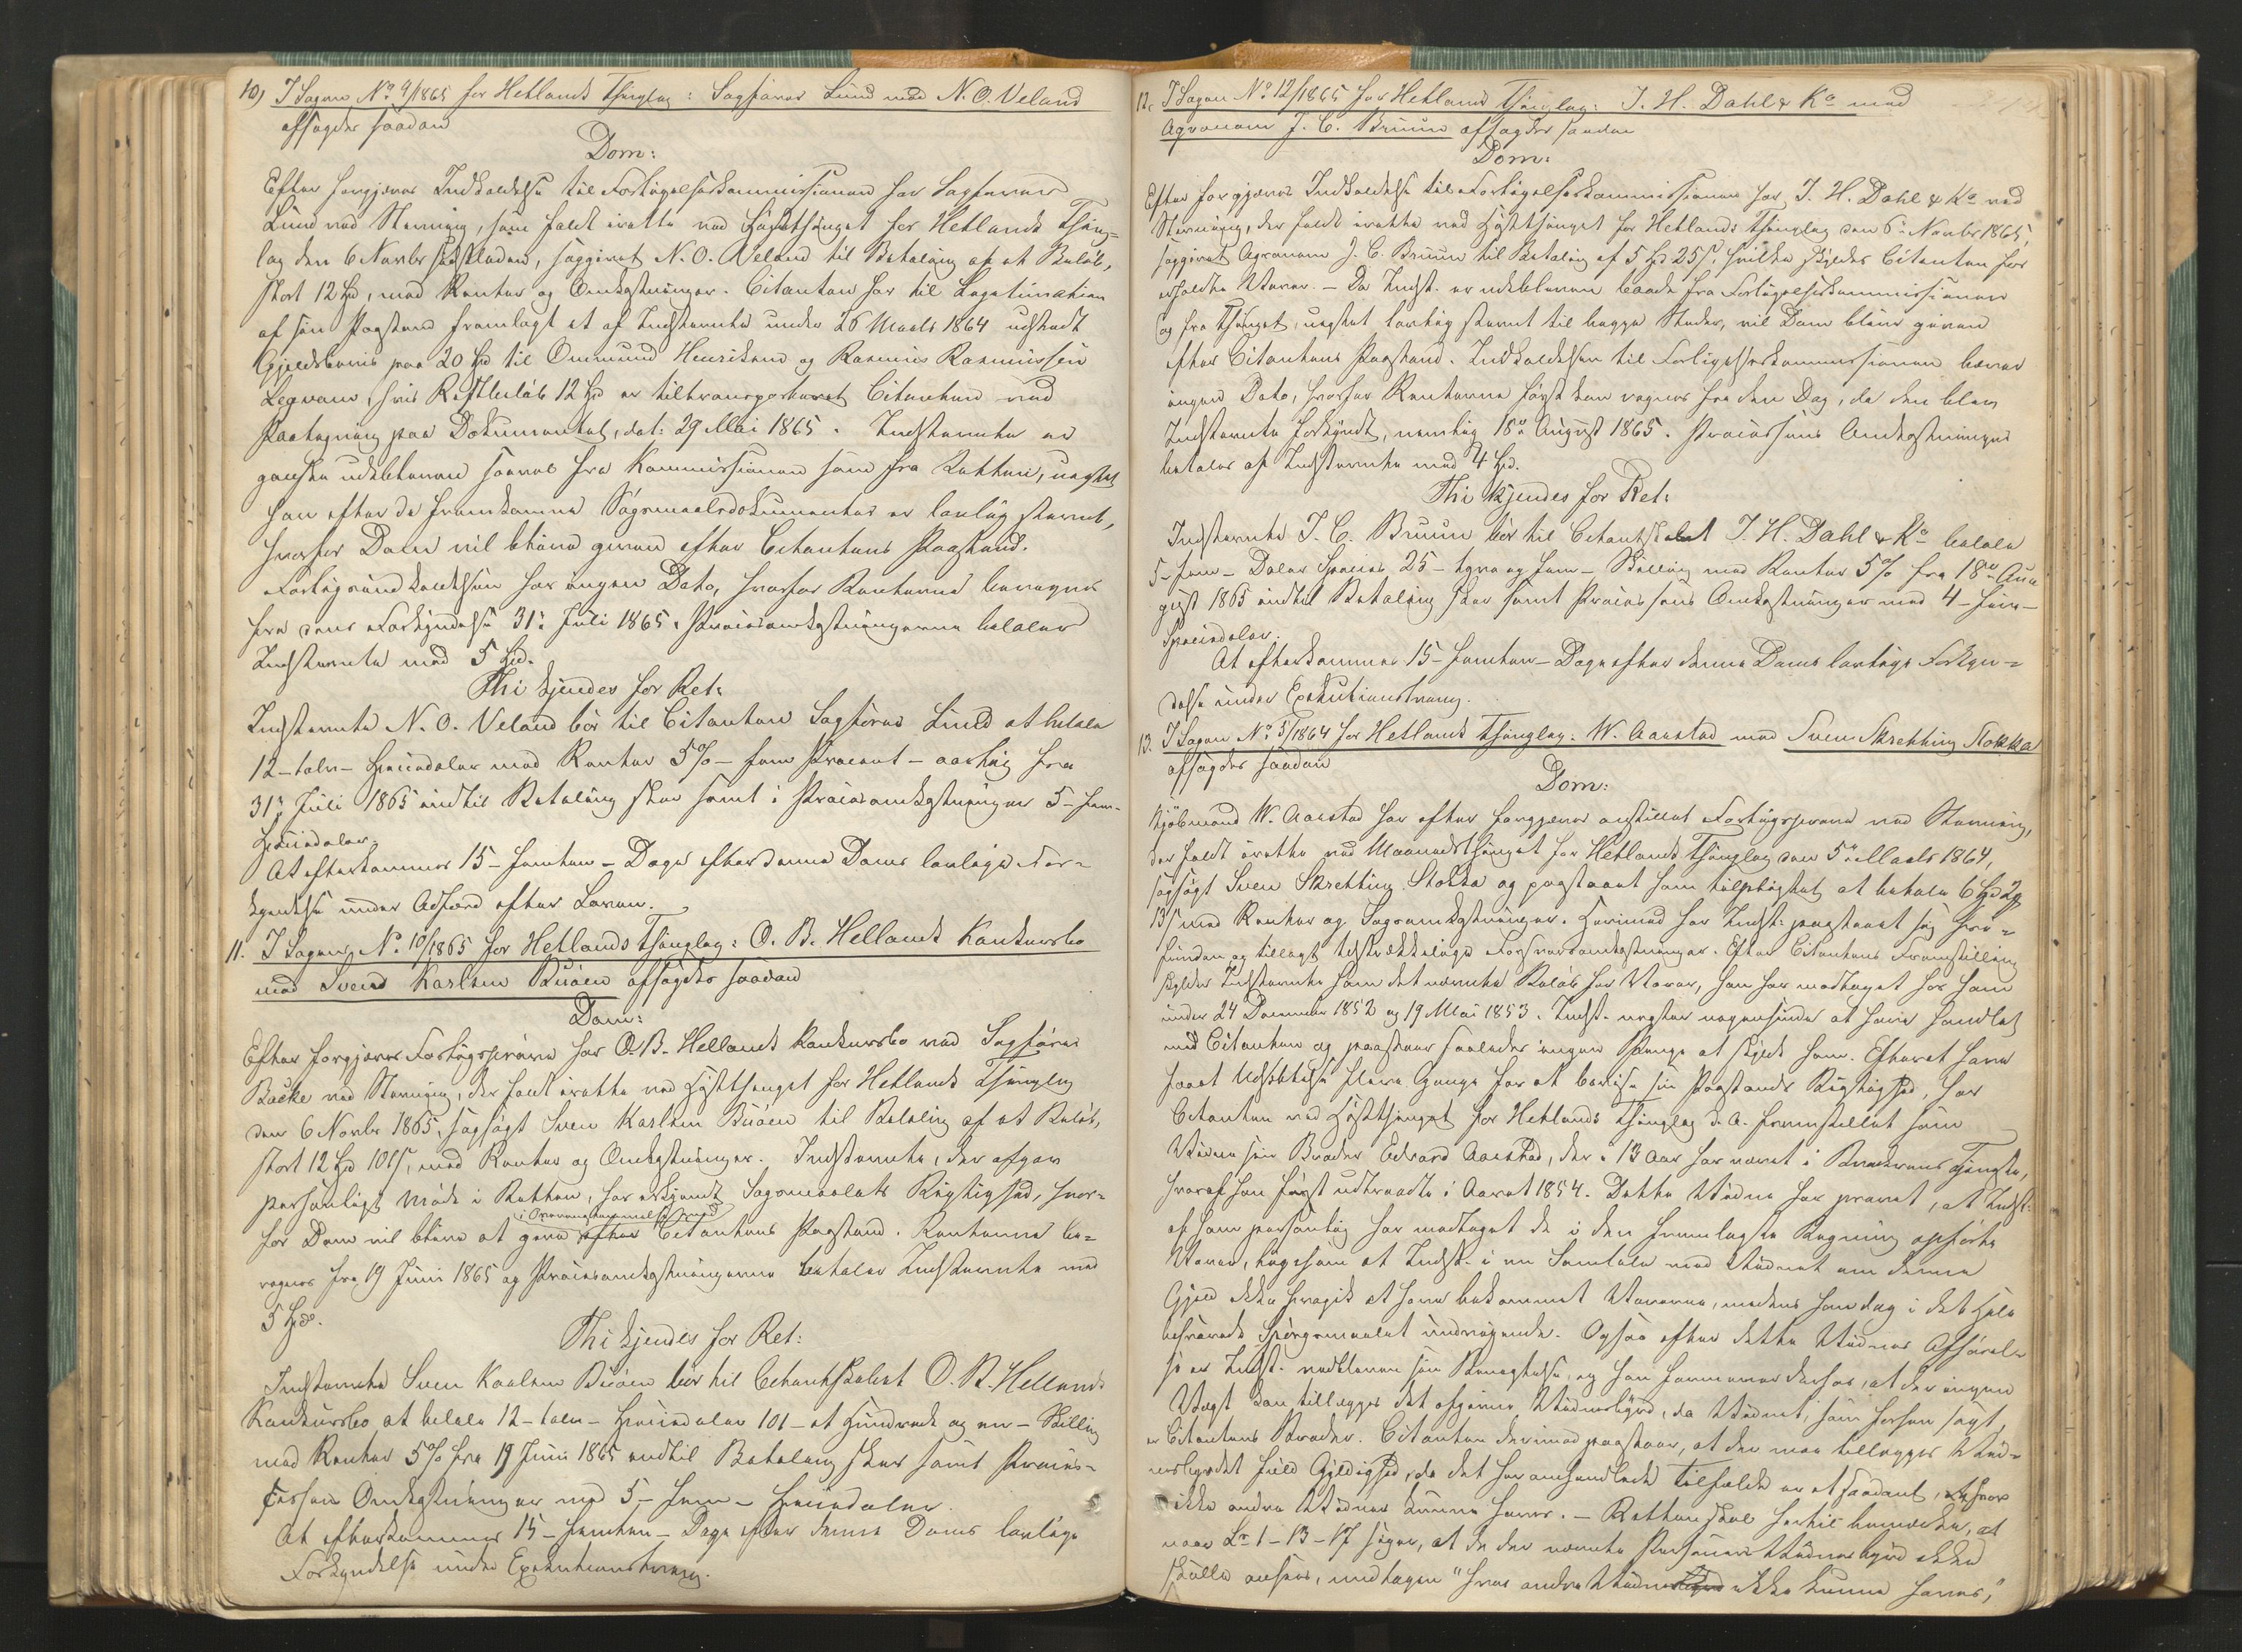 10, I Sagen No 9/1865 for Hetlands Thinglag: Sagfører Lund mod N. O. Veland
afsagdes saadan
Dom:
Efter forgjæves Indkaldelse til Forligelseskommissionen har Sagfører
Lund ved Stævning, som faldt irette ved Høstthinget for Hetlands Thing-
lag den 6 Novbr sidstleden, saggivet N. O. Veland til Betaling af et Beløb,
stort 12 Spd, med Renter og Omkostninger. Citanten har til Legitimation
af sin Paastand fremlagt et af Indstævnte under 26 Marts 1864 udstedt
Gjeldsbevis paa 20 Spd til Ommund Henriksen og Rasmus Rasmussen
, hvis Restbeløb 12 Spd er tiltransporteret Citanten ved
Paategning paa Dokumentet, dat: 29 Mai 1865. Indstævnte er
ganske udebleven saavel fra Kommissionen som fra Retten, uagtet
han efter de fremkomne Søgsmaalsdokumenter er lovlig stævnt,
hvorfor Dom vil blive given efter Citantens Paastand.
Forligsindkaldelsen har ingen Dato, hvorfor Renterne beregnes
fra dens Forkyndelse 31te Juli 1865. Procesomkostningerne betaler
Indstævnte med 5 Spd.
Thi kjendes for Ret:
Indstævnte N. O. Veland bør til Citanten Sagfører Lund at betale
12 - tolv - Speciedaler med Renter 5% - fem Procent - aarlig fra
31te Juli 1865 indtil Betaling sker samt i Procesomkostninger 5 - fem -
Speciedaler.
At efterkommes 15 - femten - Dage efter denne Doms lovlige For-
kyndelse under Adfærd efter Loven.
11. I Sagen No 10/1865 for Hetlands Thinglag: O. B. Hellands Konkursbo
mod Svend Karlsen Buøen afsagdes saadan
Dom:
Efter forgjæves Forligsprøve har O. B. Hellands Konkursbo ved Sagfører
Bucke ved Stævning, der faldt irette ved Høstthinget for Hetlands Thinglag
den 6 Novbr 1865, sagsøgt Sven Karlsen Buøen til Betaling af et Beløb,
stort 12 Spd 101 s, med Renter og Omkostninger. Indstævnte, der afgav
personligt Møde i Retten, har erkjendt Søgsmaalets Rigtighed, hvor-
i Overensstemmelse med
for Dom vil blive at give efter Citantens Paastand. Renterne be-
regnes fra 19 Juni 1865 og Procesomkostningerne betaler Indstævnte med
5 Spd.
Thi kjendes for Ret:
Indstævnte Sven Karlsen Buøen bør til Citantskabet O. B. Hellands
Konkursbo at betale 12 - tolv - Speciedaler 101 - et Hundrede og en - Skilling
med Renter 5% fra 19 Juni 1865 indtil Betaling sker samt Proces-
sens Omkostninger med 5 - fem - Speciedaler.
At efterkommes 15 - femten - Dage efter denne Doms lovlige
Forkyndelse under Exekutionstvang.
12. I Sagen No 12/1865 for Hetlands Thinglag: J. H. Dahl & Ko mod
Agronom J. C. Bruun afsagdes saadan
Dom:
Efter forgjæves Indkaldelse til Forligelseskommissionen har J. H. Dahl & Ko ved
Stævning, der faldt irette ved Høstthinget for Hetlands Thinglag den 6te Novbr 1865,
saggivet Agronom J. C. Bruun til Betaling af 5 Spd 25 s. hvilke skyldes Citanten for
erholdte Varer. - Da Indst. er udebleven baade fra Forligelseskommissionen
og fra Thinget, uagtet lovlig stævnt til begge Steder, vil Dom blive given
efter Citantens Paastand. Indkaldelsen til Forligelseskommissionen bærer
ingen Dato, hvorfor Renterne først kan regnes fra den Dag, da den blev
Indstævnte forkyndt, nemlig 18de August 1865. Processens Omkostninger
betales af Indstævnte med 4 Spd.
Thi kjendes for Ret:
Indstævnte J. C. Bruun bør til Citantskabet J. H. Dahl & Ko betale
5 - fem - Daler Species 25 - tyve og fem - Skilling med Renter 5% fra 18de Au-
gust 1865 indtil Betaling sker samt Processens Omkostninger med 4 - fire -
Speciedaler.
At efterkommes 15 - femten - Dage efter denne Doms lovlige Forkyn-
delse under Exekutionstvang.
13. I Sagen No 5/1864 for Hetlands Thinglag: W. Aarestad mod Sven Skretting Stokka
afsagdes saadan
Dom:
Kjøbmand W. Aarestad har efter forgjæves anstillet Forligsprøve ved Stævning,
der faldt irette ved Maanedsthinget for Hetlands Thinglag den 5te Marts 1864,
sagsøgt Sven Skretting Stokka og paastaaet ham tilpligtet at betale 6 Spd 2
13 s med Renter og Sagsomkostninger. Herimod har Indst. paastaaet sig fri-
funden og tillagt tilstrækkelige Forsvarsomkostninger. Efter Citantens Fremstilling
skylder Indstævnte ham det nævnte Beløb for Varer, han har modtaget hos ham
under 24 December 1852 og 19 Mai 1853. Indst. negter nogensinde at have handlet
med Citanten og paastaar saaledes ingen Penge at skylde ham. Efterat have
faaet Udsættelse flere Gange for at bevise sin Paastands Rigtighed, har
Citanten ved Høstthinget for Hetlands Thinglag d. A. fremstillet som
Vidne sin Broder Edvard Aarestad, der i 13 Aar har været i Broderens Tjeneste,
hvoraf han først udtraadte i Aaret 1854. Dette Vidne har prøvet, at Indst.
af ham personlig har modtaget de i den fremlagte Regning opførte
Varer, ligesom at Indst. i en Samtale med Vidnet om denne
Gjeld ikke fragik at have bekommet Varerne, medens han dog i det Hele
besvarede Spørgsmaalet undvigende. Ogsaa efter dette Vidnes Afhørel-
se er Indst. vedbleven sin Benegtelse, og han formener derhos, at der ingen
Vægt kan tillægges det afgivne Vidnesbyrd, da Vidnet, som forhen sagt,
er Citantens Broder. Citanten derimod paastaar, at der maa tillægges Vid-
nesbyrdet fuld Gyldighed, da det her omhandlede Tilfælde er et saadant, hvor
ikke andre Vidner kunne haves. - Retten skal hertil bemærke, at
naar L. 1-13-17 siger, at de der nævnte Personers Vidnesbyrd ikke
skulle ansees, undtagen "hvor andre Vidner ikke kunne haves,"